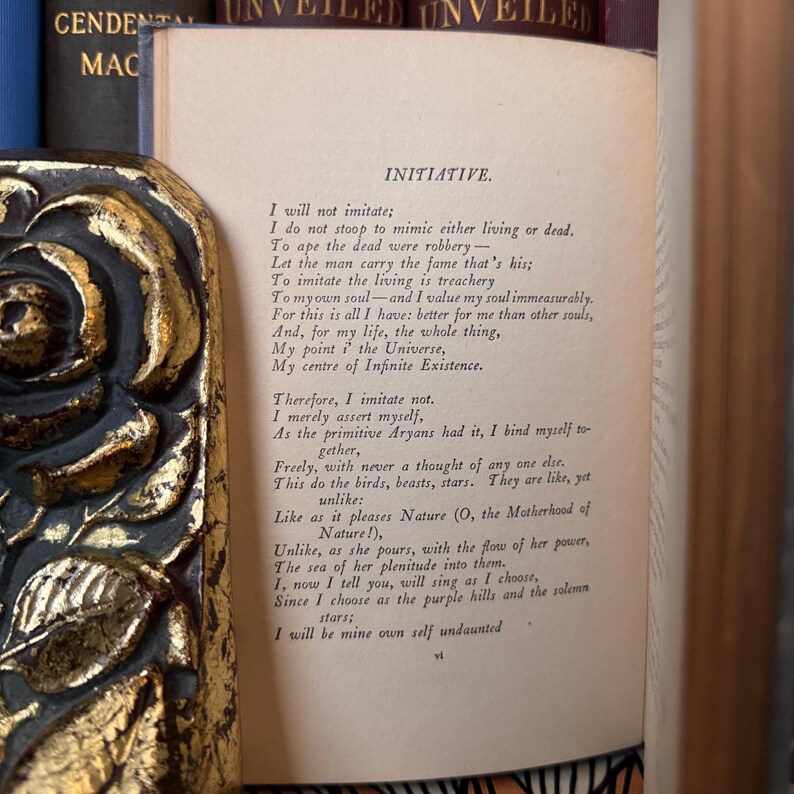 CENDENTAL
MAG
UNVEILED
UNVEILED
INITIATIVE.
I will not imitate;
I do not stoop to mimic either living or dead.
To ape the dead were robbery—
Let the man carry the fame that's his;
To imitate the living is treachery
To my own soul—and I value my soul immeasurably.
For this is all I have: better for me than other souls,
And, for my life, the whole thing,
My point i' the Universe,
My centre of Infinite Existence.
Therefore, I imitate not.
I merely assert myself,
As the primitive Aryans had it, I bind myself to-
gether,
Freely, with never a thought of any one else.
This do the birds, beasts, stars. They are like, yet
unlike:
Like as it pleases Nature (O, the Motherhood of
Nature!),
Unlike, as she pours, with the flow of her power,
The sea of her plenitude into them.
I, now I tell you, will sing as I choose,
Since I choose as the purple hills and the solemn
stars;
I will be mine own self undaunted
vi